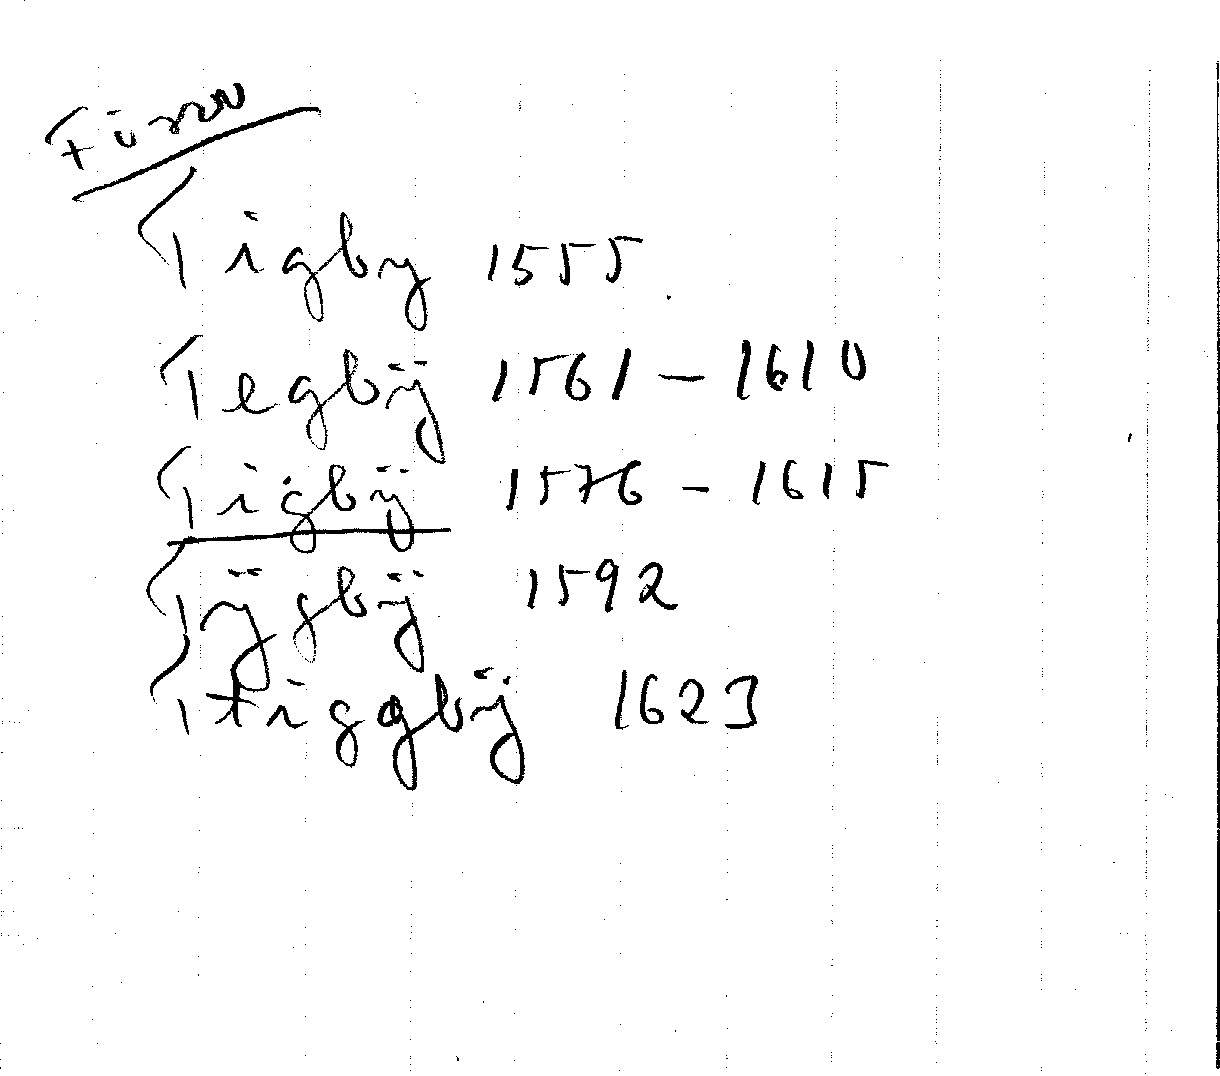 Tigby 1555
Tegbÿ 1561 – 1610
Tigbÿ 1576 – 1615
Tÿgbÿ 1592
Ttiggbÿ 1623